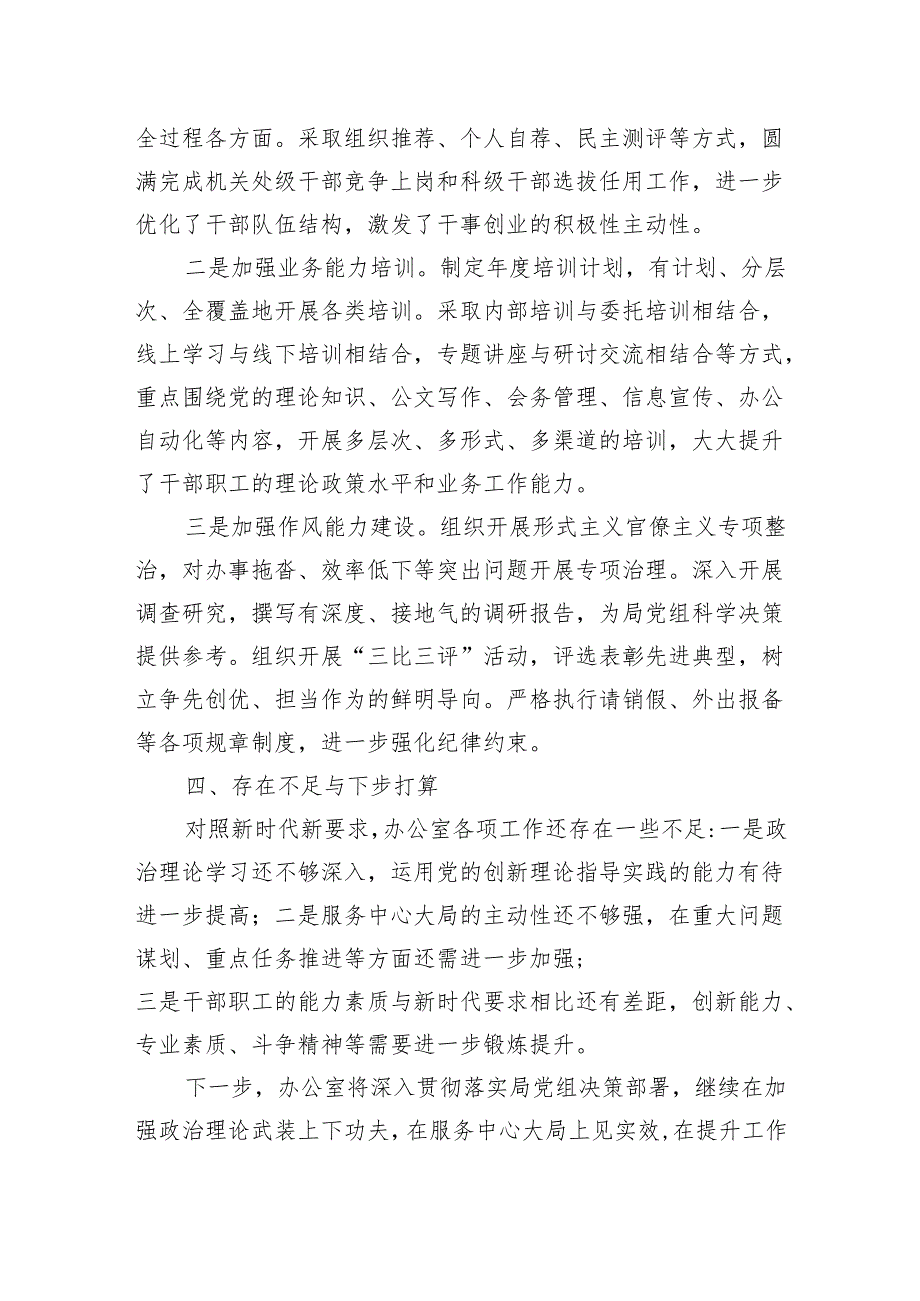 全过程各方面。采取组织推荐、个人自荐、民主测评等方式，圆
满完成机关处级干部竞争上岗和科级干部选拔任用工作，进一步
优化了干部队伍结构，激发了干事创业的积极性主动性。
二是加强业务能力培训。制定年度培训计划，有计划、分层
次、全覆盖地开展各类培训。采取内部培训与委托培训相结合，
线上学习与线下培训相结合，专题讲座与研讨交流相结合等方式，
重点围绕党的理论知识、公文写作、会务管理、信息宣传、办公
自动化等内容，开展多层次、多形式、多渠道的培训，大大提升
了干部职工的理论政策水平和业务工作能力。
三是加强作风能力建设。组织开展形式主义官僚主义专项整
治，对办事拖沓、效率低下等突出问题开展专项治理。深入开展
调查研究，撰写有深度、接地气的调研报告，为局党组科学决策
提供参考。组织开展“三比三评”活动，评选表彰先进典型，树
立争先创优、担当作为的鲜明导向。严格执行请销假、外出报备
等各项规章制度，进一步强化纪律约束。
四、存在不足与下步打算
对照新时代新要求,办公室各项工作还存在一些不足:一是政
治理论学习还不够深入，运用党的创新理论指导实践的能力有待
进一步提高；二是服务中心大局的主动性还不够强，在重大问题
谋划、重点任务推进等方面还需进一步加强;
三是干部职工的能力素质与新时代要求相比还有差距，创新能力、
专业素质、斗争精神等需要进一步锻炼提升。
下一步，办公室将深入贯彻落实局党组决策部署，继续在加
强政治理论武装上下功夫,在服务中心大局上见实效,在提升工作